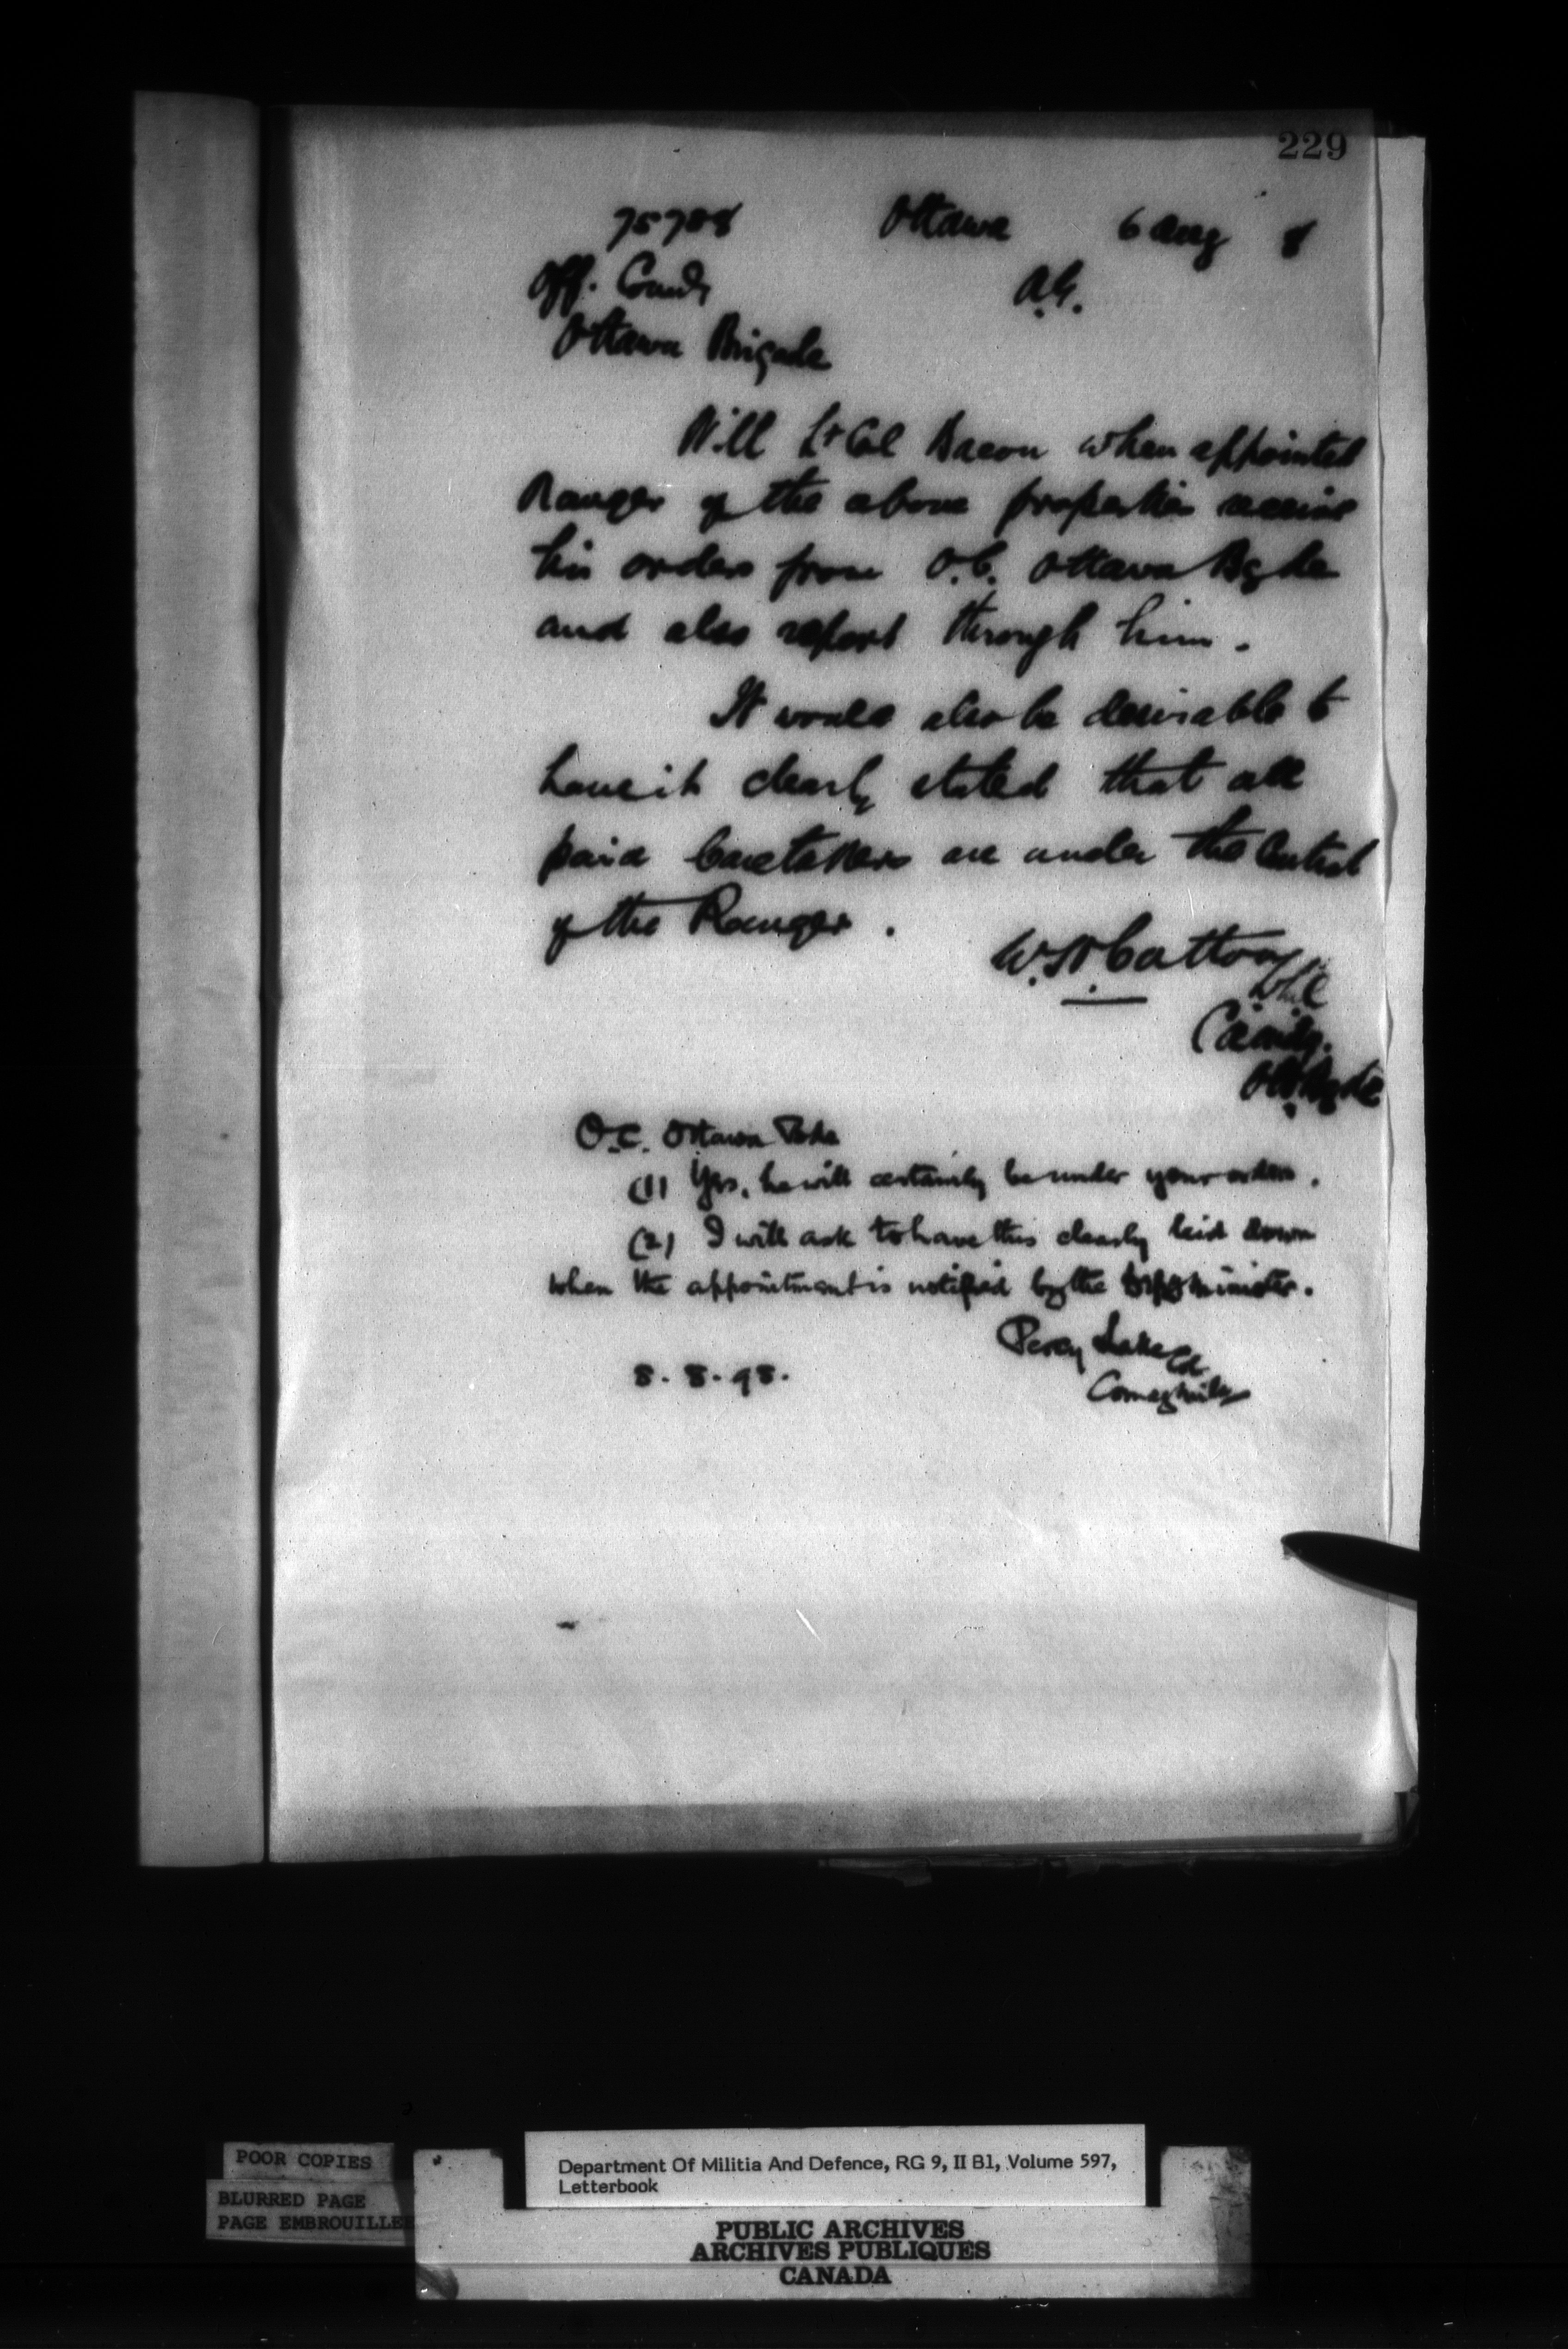 229
75708 Ottawa 6 Aug 8
Off. Comdg A.G.
Ottawa Brigade
Will Lt Col Bacon when appointed
Ranger of the above properties receive
his orders from O.C. Ottawa Bgde
and also report through him.
It would also be desirable to
have it clearly stated that all
paid Caretakers are under the Control
of the Ranger.
W.H. Cotton
Comdg.
Ott. Bgde
O.C. Ottawa Bde
(1) Yes, he will certainly be under your orders.
(2) I will ask to have this clearly laid down
when the appointment is notified by the Minister.
Percy Lake Col.
8.8.98.
POOR COPIES
BLURRED PAGE
PAGE EMBROUILLE
Department Of Militia And Defence, RG 9, II B1, Volume 597,
Letterbook
PUBLIC ARCHIVES
ARCHIVES PUBLIQUES
CANADA